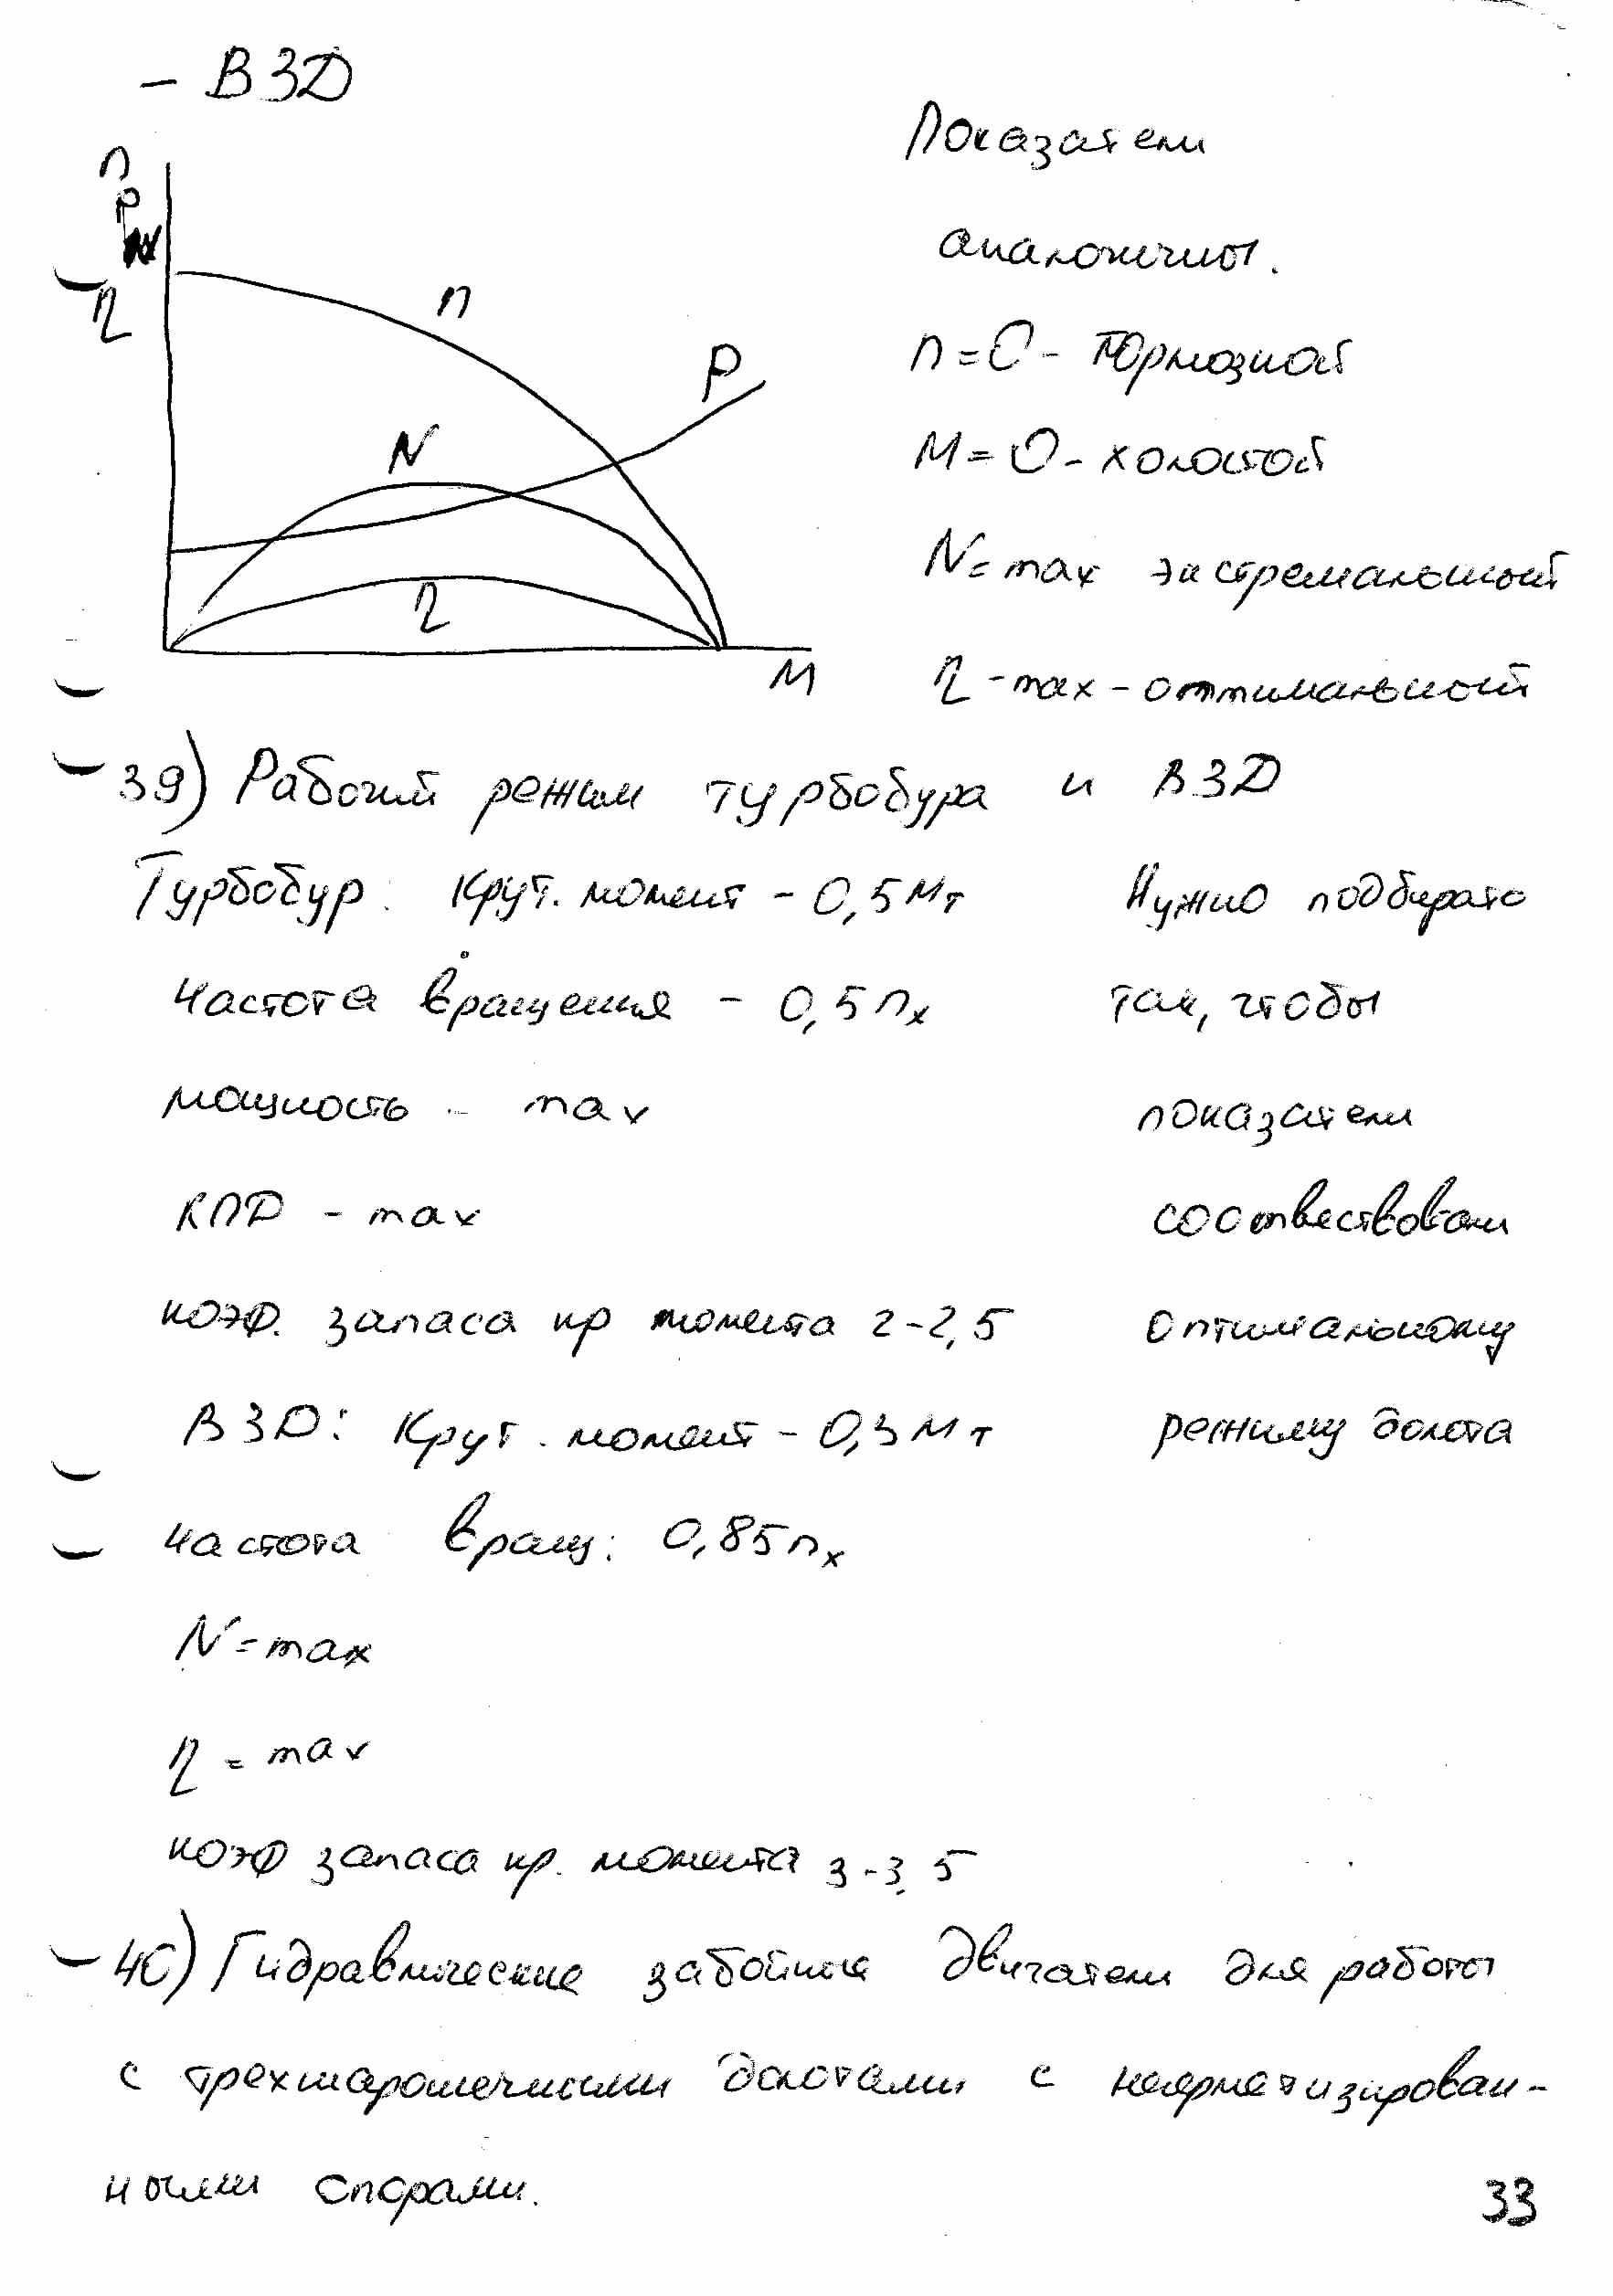 - ВЗД
n
P
η
n
P
N
η
M
Показатели
аналогичны.
n = 0 - тормозной
M = 0 - холостой
N = max экстремальный
η - max - оптимальный
39) Рабочий режим турбобура и ВЗД
Турбобур: Крут. момент - 0,5 Mт
Частота вращения - 0,5 nх
мощность - max
КПД - max
коэф. запаса кр момента 2-2,5
Нужно подбирать
так, чтобы
показатели
соотвествовали
оптимальному
режиму долота
ВЗД: Крут. момент - 0,3 Mт
частота вращ: 0,85 nх
N = max
η = max
коэф запаса кр. момента 3-3,5
40) Гидравлические забойные двигатели для работы
с трехшарошечными долотами с негерметизирован-
ными опорами.
33